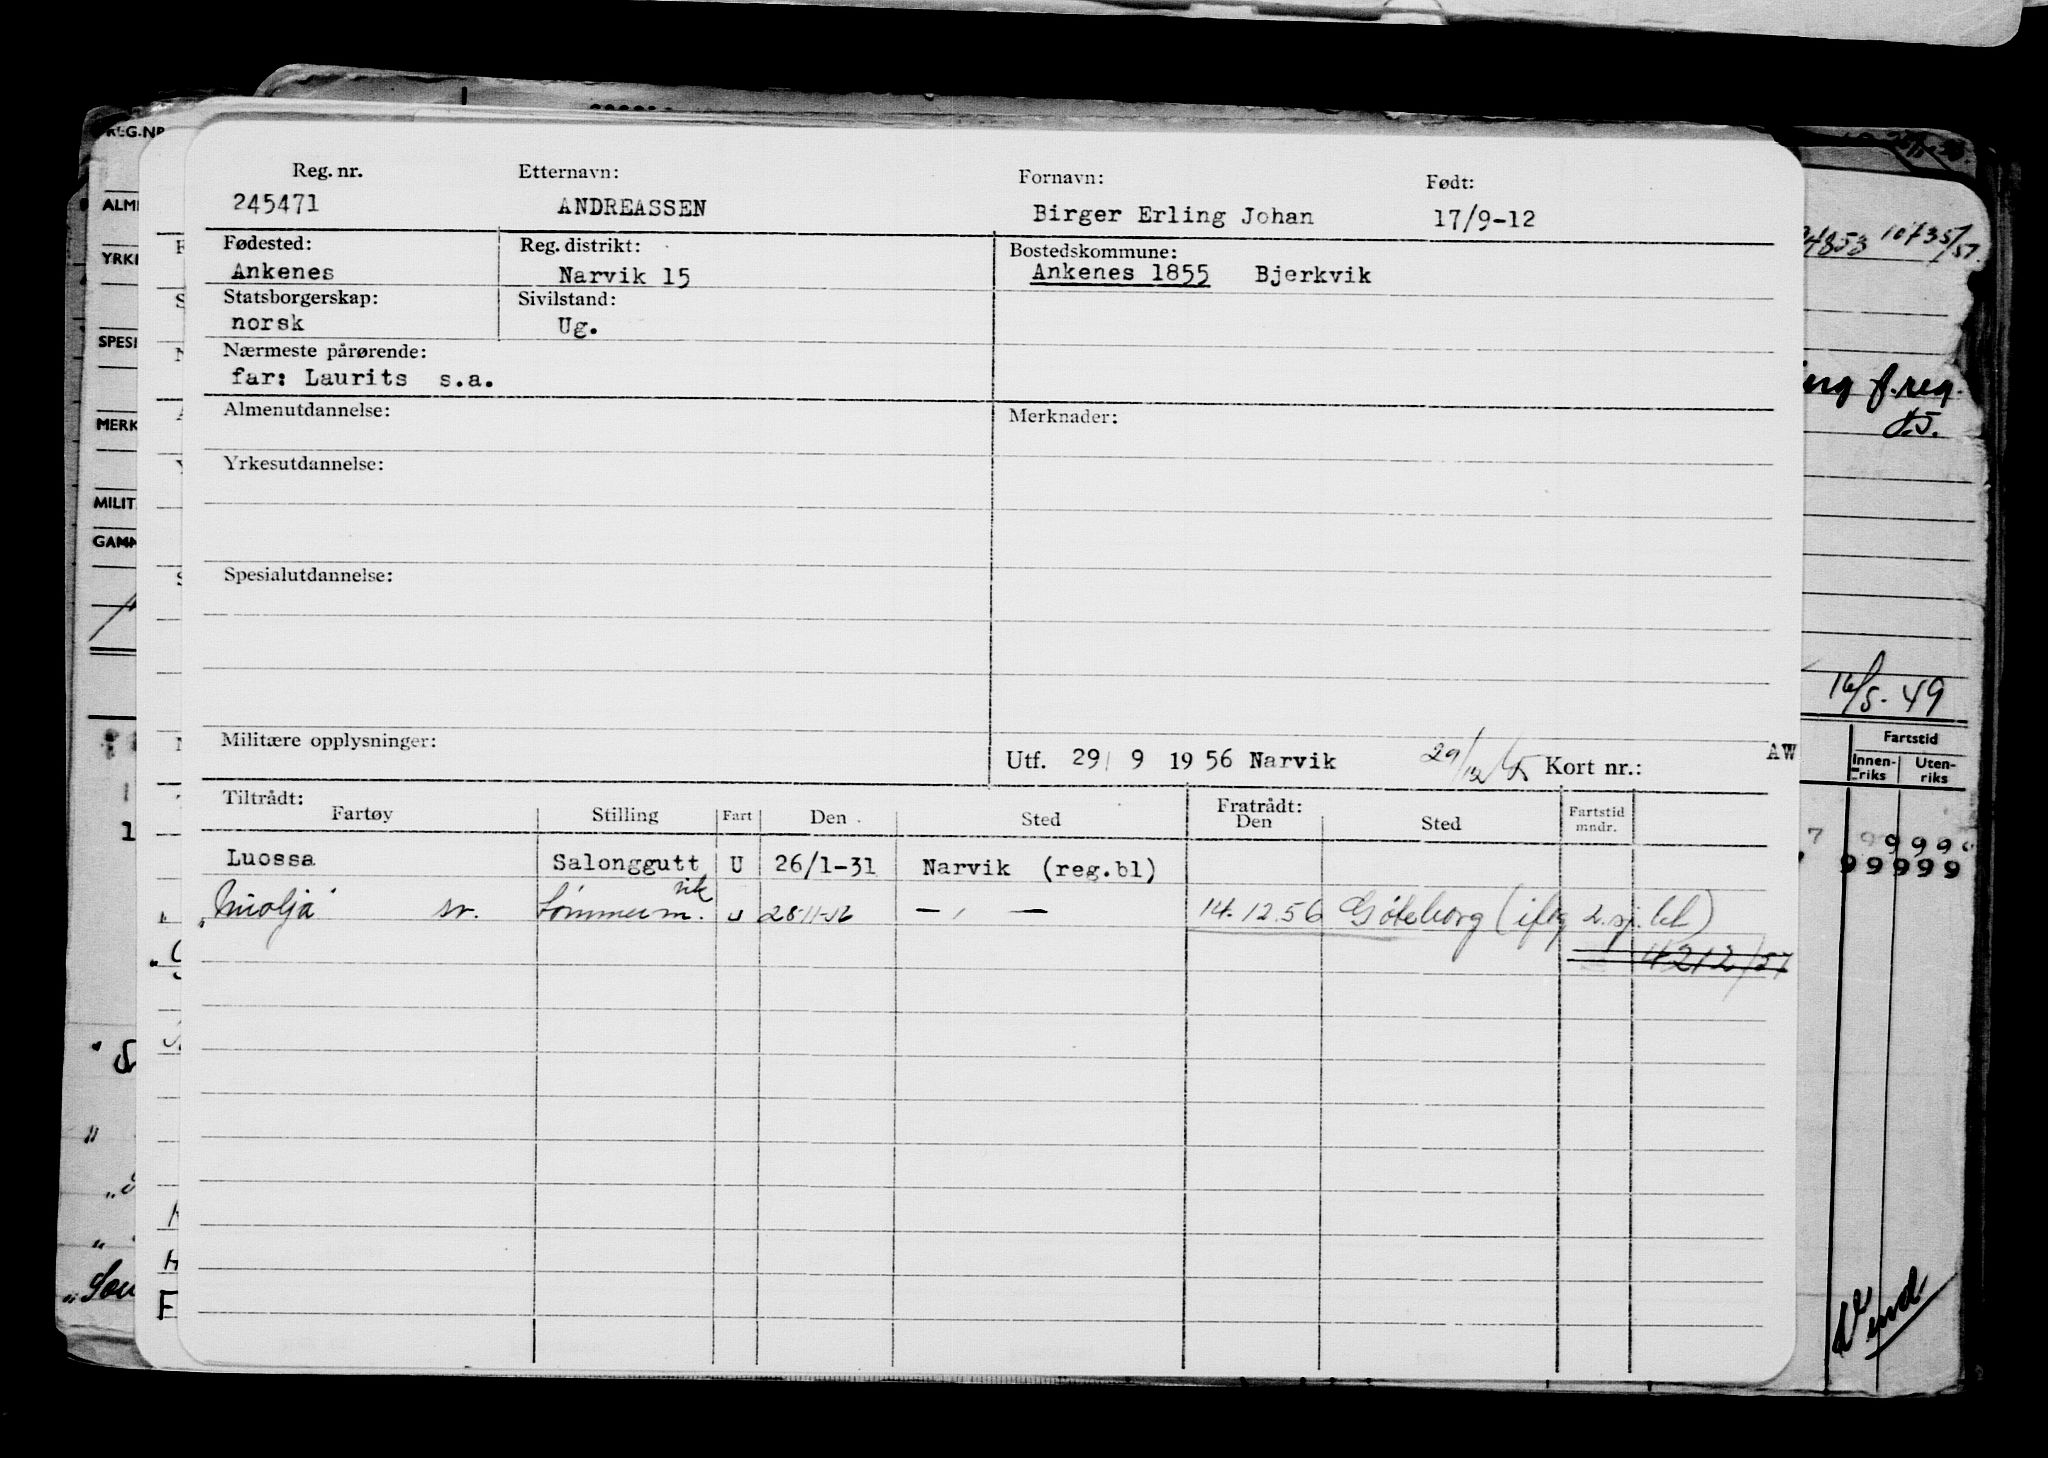 REG.NR
Reg. nr. Etternavn: Fornavn: Født:
245471 ANDREASSEN Birger Erling Johan 17/9-12
Fødested: Reg. distrikt: Bostedskommune:
Ankenes Narvik 15 Ankenes 1855 Bjerkvik
Statsborgerskap: Sivilstand:
norsk Ug.
Nærmeste pårørende:
far: Laurits s.a.
Almenutdannelse: Merknader:
Yrkesutdannelse:
Spesialutdannelse:
Militære opplysninger:
Utf. 29/ 9 19 56 Narvik 29/12 Kort nr.: AW
Tiltrådt: Fratrådt:
Fartøy Stilling Fart Den Sted Den Sted Fartstid mndr.
Luossa Salonggutt U 26/1-31 Narvik (reg.bl)
"Muolja" sv. tømmerm. vik u 28-11-56 — " — 14.12.56 Göteborg (iflg 2. sj. bl)
4212/57
ALM
YRK
SPESI
MERK
MILIT
GAMM
10735/57
f.reg.
16/5-49
Fartstid
Innenriks Utenriks
9999
99999
Vend